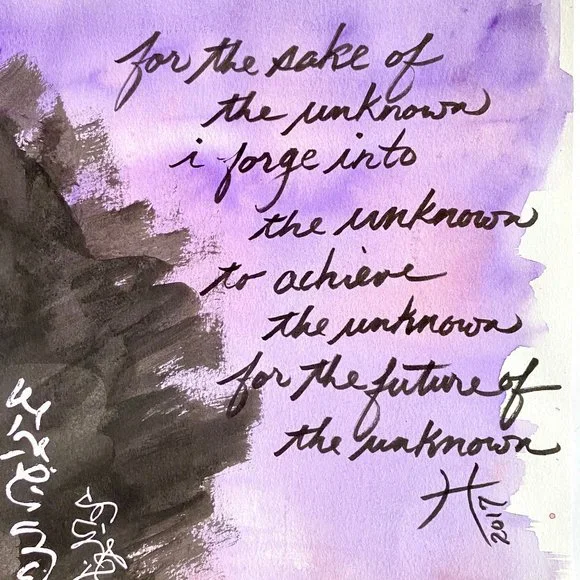 for the sake of
the unknown
i forge into
the unknown
to achieve
the unknown
for the future of
the unknown
H
2017